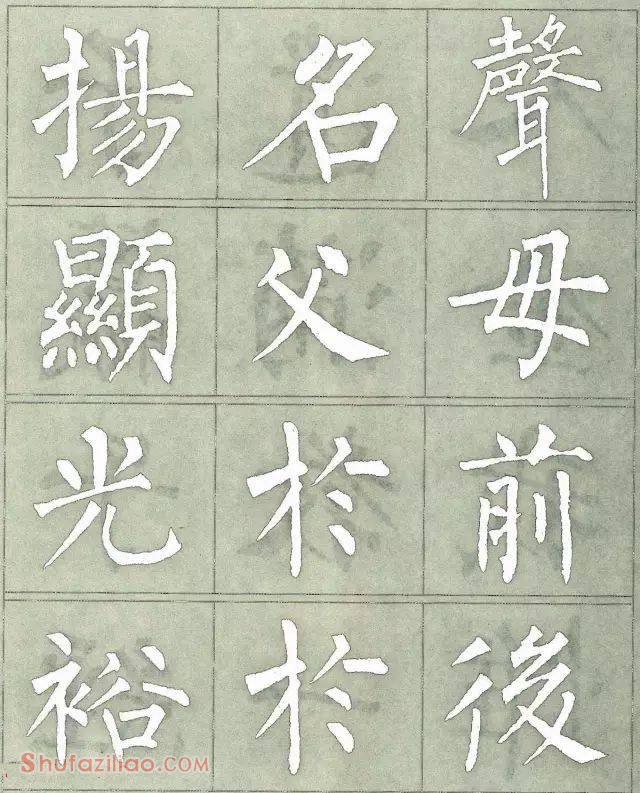 揚名聲
顯父母
光於前
裕於後
Shufaziliao.com